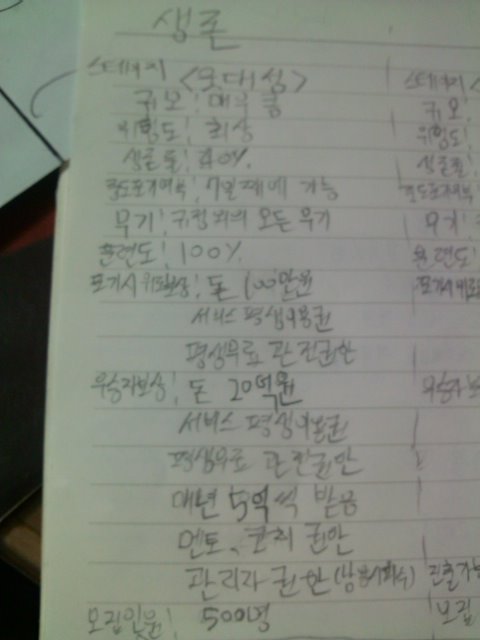 생존
스테이지 <못대섬>
규모: 매우 큼
위험도: 최상
생존률: 40%
중도포기여부: 7일째에 가능
무기: 규정외의 모든 무기
훈련도: 100%
포기시 위로보상: 돈 100만원
서비스 평생이용권
평생무료 관전권한
우승자보상: 돈 20억원
서비스 평생이용권
평생무료 관전권한
매년 5억씩 받음
멘토, 코치 권한
관리자 권한
모집인원: 500명
스테이지 <
규모:
위험도:
생존률:
중도포기여부
무기:
훈련도:
포기시 위로
우승자보
진출자
모집